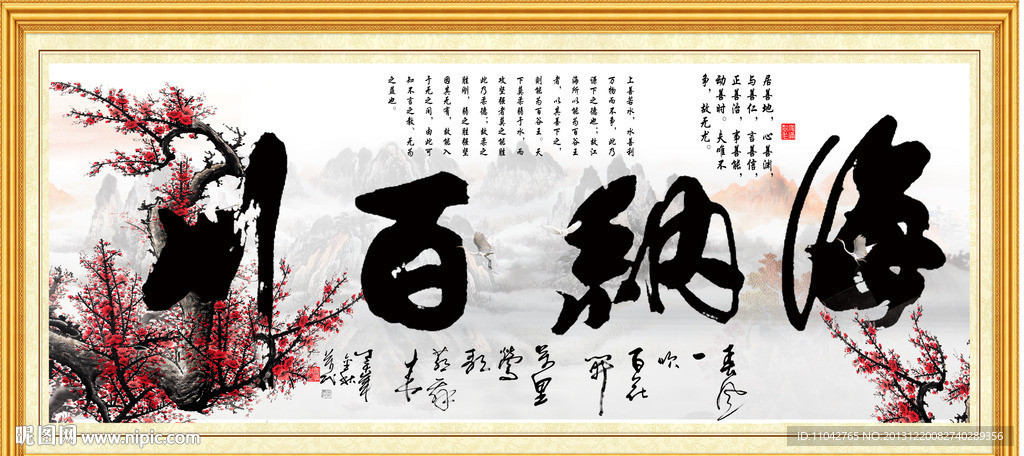 海纳百川
居善地，心善渊，
与善仁，言善信，
正善治，事善能，
动善时。夫唯不
争，故无尤。
上善若水，水善利
万物而不争，此乃
谦下之德也；故江
海所以能为百谷王
者，以其善下之，
则能为百谷王。天
下莫柔弱于水，而
攻坚强者莫之能胜
此乃柔德；故柔之
胜刚，弱之胜强坚
因其无有，故能入
于无之间，由此可
知不言之教、无为
之益也。
春风
一
吹
百花
開
万里
莺
歌
燕舞
春
昵图网 www.nipic.com
ID:11042765 NO:20131220082740289356